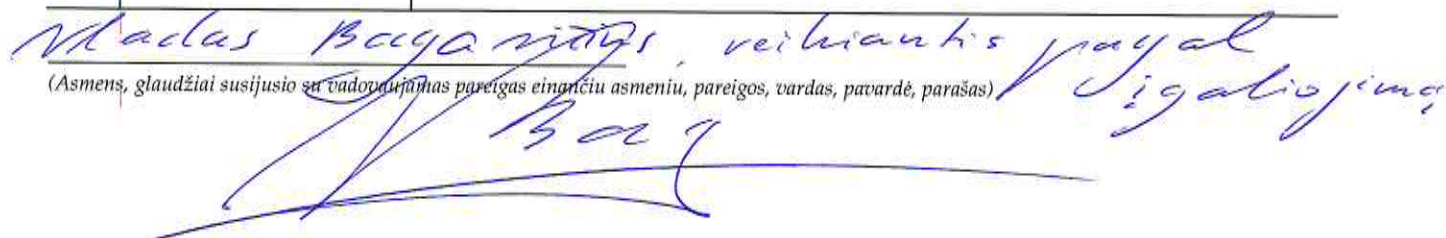 Vladas Bagavičius, veikiantis pagal
įgaliojimą
(Asmens, glaudžiai susijusio su vadovaujamas pareigas einančiu asmeniu, pareigos, vardas, pavardė, parašas)